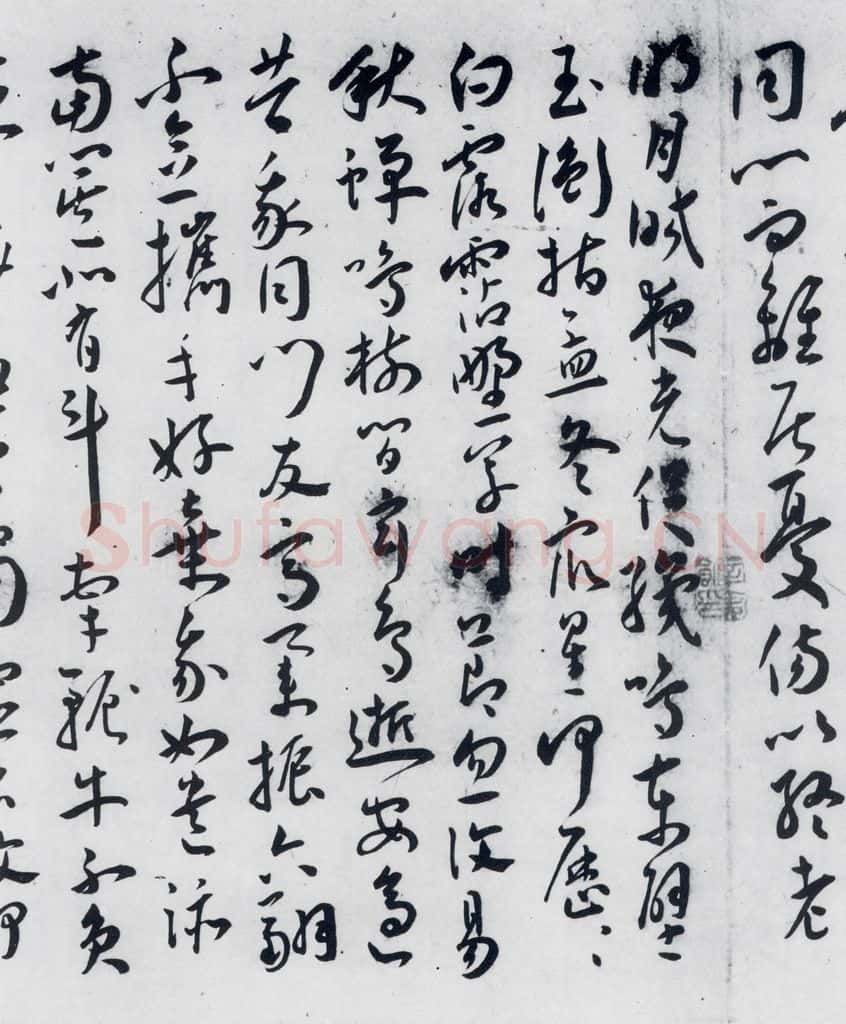 同心而離居憂傷以終老
明月皎夜光促織鳴東壁
玉衡指孟冬衆星何歷〻
白露霑野草時節忽復易
秋蟬鳴樹間玄鳥逝安適
昔我同門友高舉振六翮
不念攜手好棄我如遺跡
南箕北有斗牽軛牛不負
Shufawang.CN